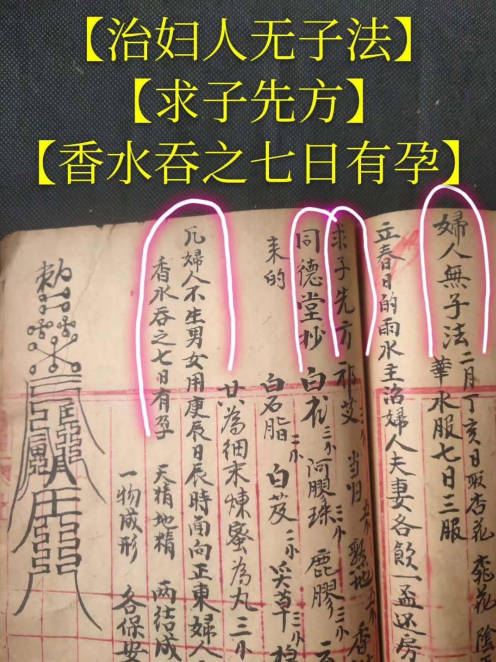 【治妇人无子法】
【求子先方】
【香水吞之七日有孕】
婦人無子法 二月丁亥日取杏花 桃花 陰
華水服七日三服
立春日的雨水主治婦人夫妻各飲一盃还房
求子先方 祁艾 当归 熟地 香
同德堂抄 白朮 三小 阿膠珠 三小 鹿膠
来的 白石脂 二小 白芨 二小 炙草 三小
共為細末煉蜜為丸三小
凡婦人不生男女用庚辰日辰時南向正東婦人
香水吞之七日有孕 天精地精 两结成
一物成形 各保安
敕